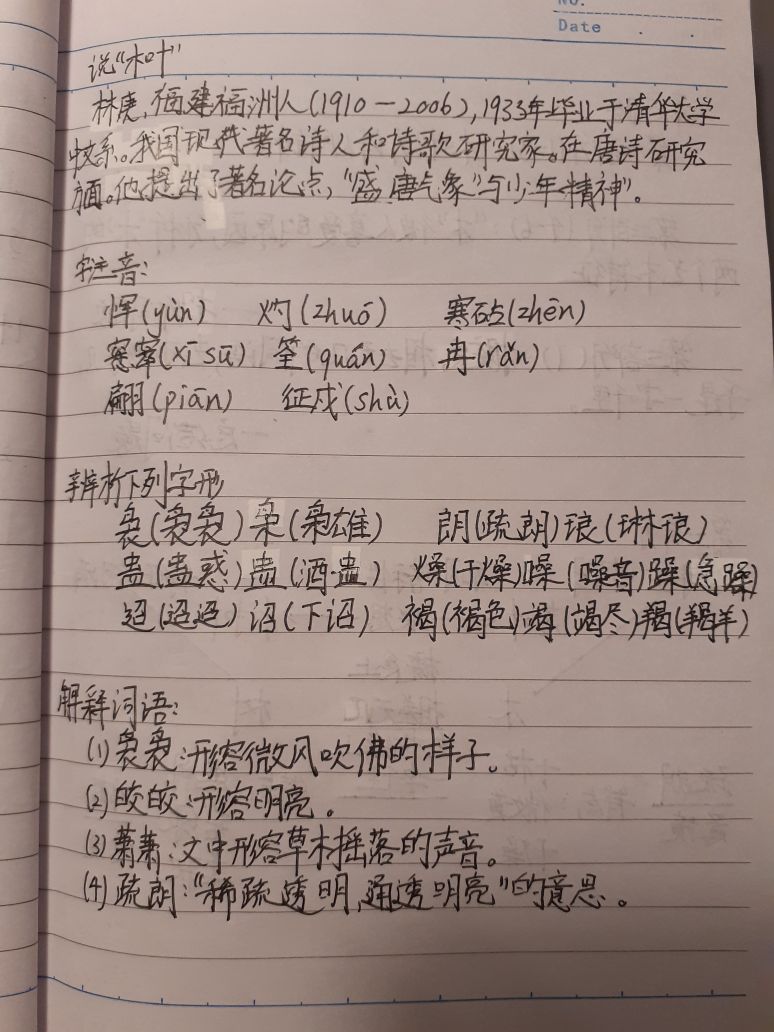 No.
Date . .
说“木叶”
林庚,福建福洲人(1910—2006),1933年毕业于清华大学
系。我国现代著名诗人和诗歌研究家。在唐诗研究
方面。他提出了著名论点,“盛唐气象”与少年精神”。
字注音:
恽(yùn) 灼(zhuó) 寒砧(zhēn)
窸窣(xī sū) 筌(quán) 冉(rǎn)
翩(piān) 征戍(shù)
辨析下列字形
袅(袅袅) 枭(枭雄) 朗(疏朗) 琅(琳琅)
蛊(蛊惑) 蛊(酒蛊) 燥(干燥) 噪(噪音) 躁(急躁)
迢(迢迢) 诏(下诏) 褐(褐色) 竭(竭尽) 羯(羯羊)
解释词语:
(1)袅袅:形容微风吹佛的样子。
(2)皎皎:形容明亮。
(3)萧萧:文中形容草木摇落的声音。
(4)疏朗:“稀疏透明,通透明亮”的意思。